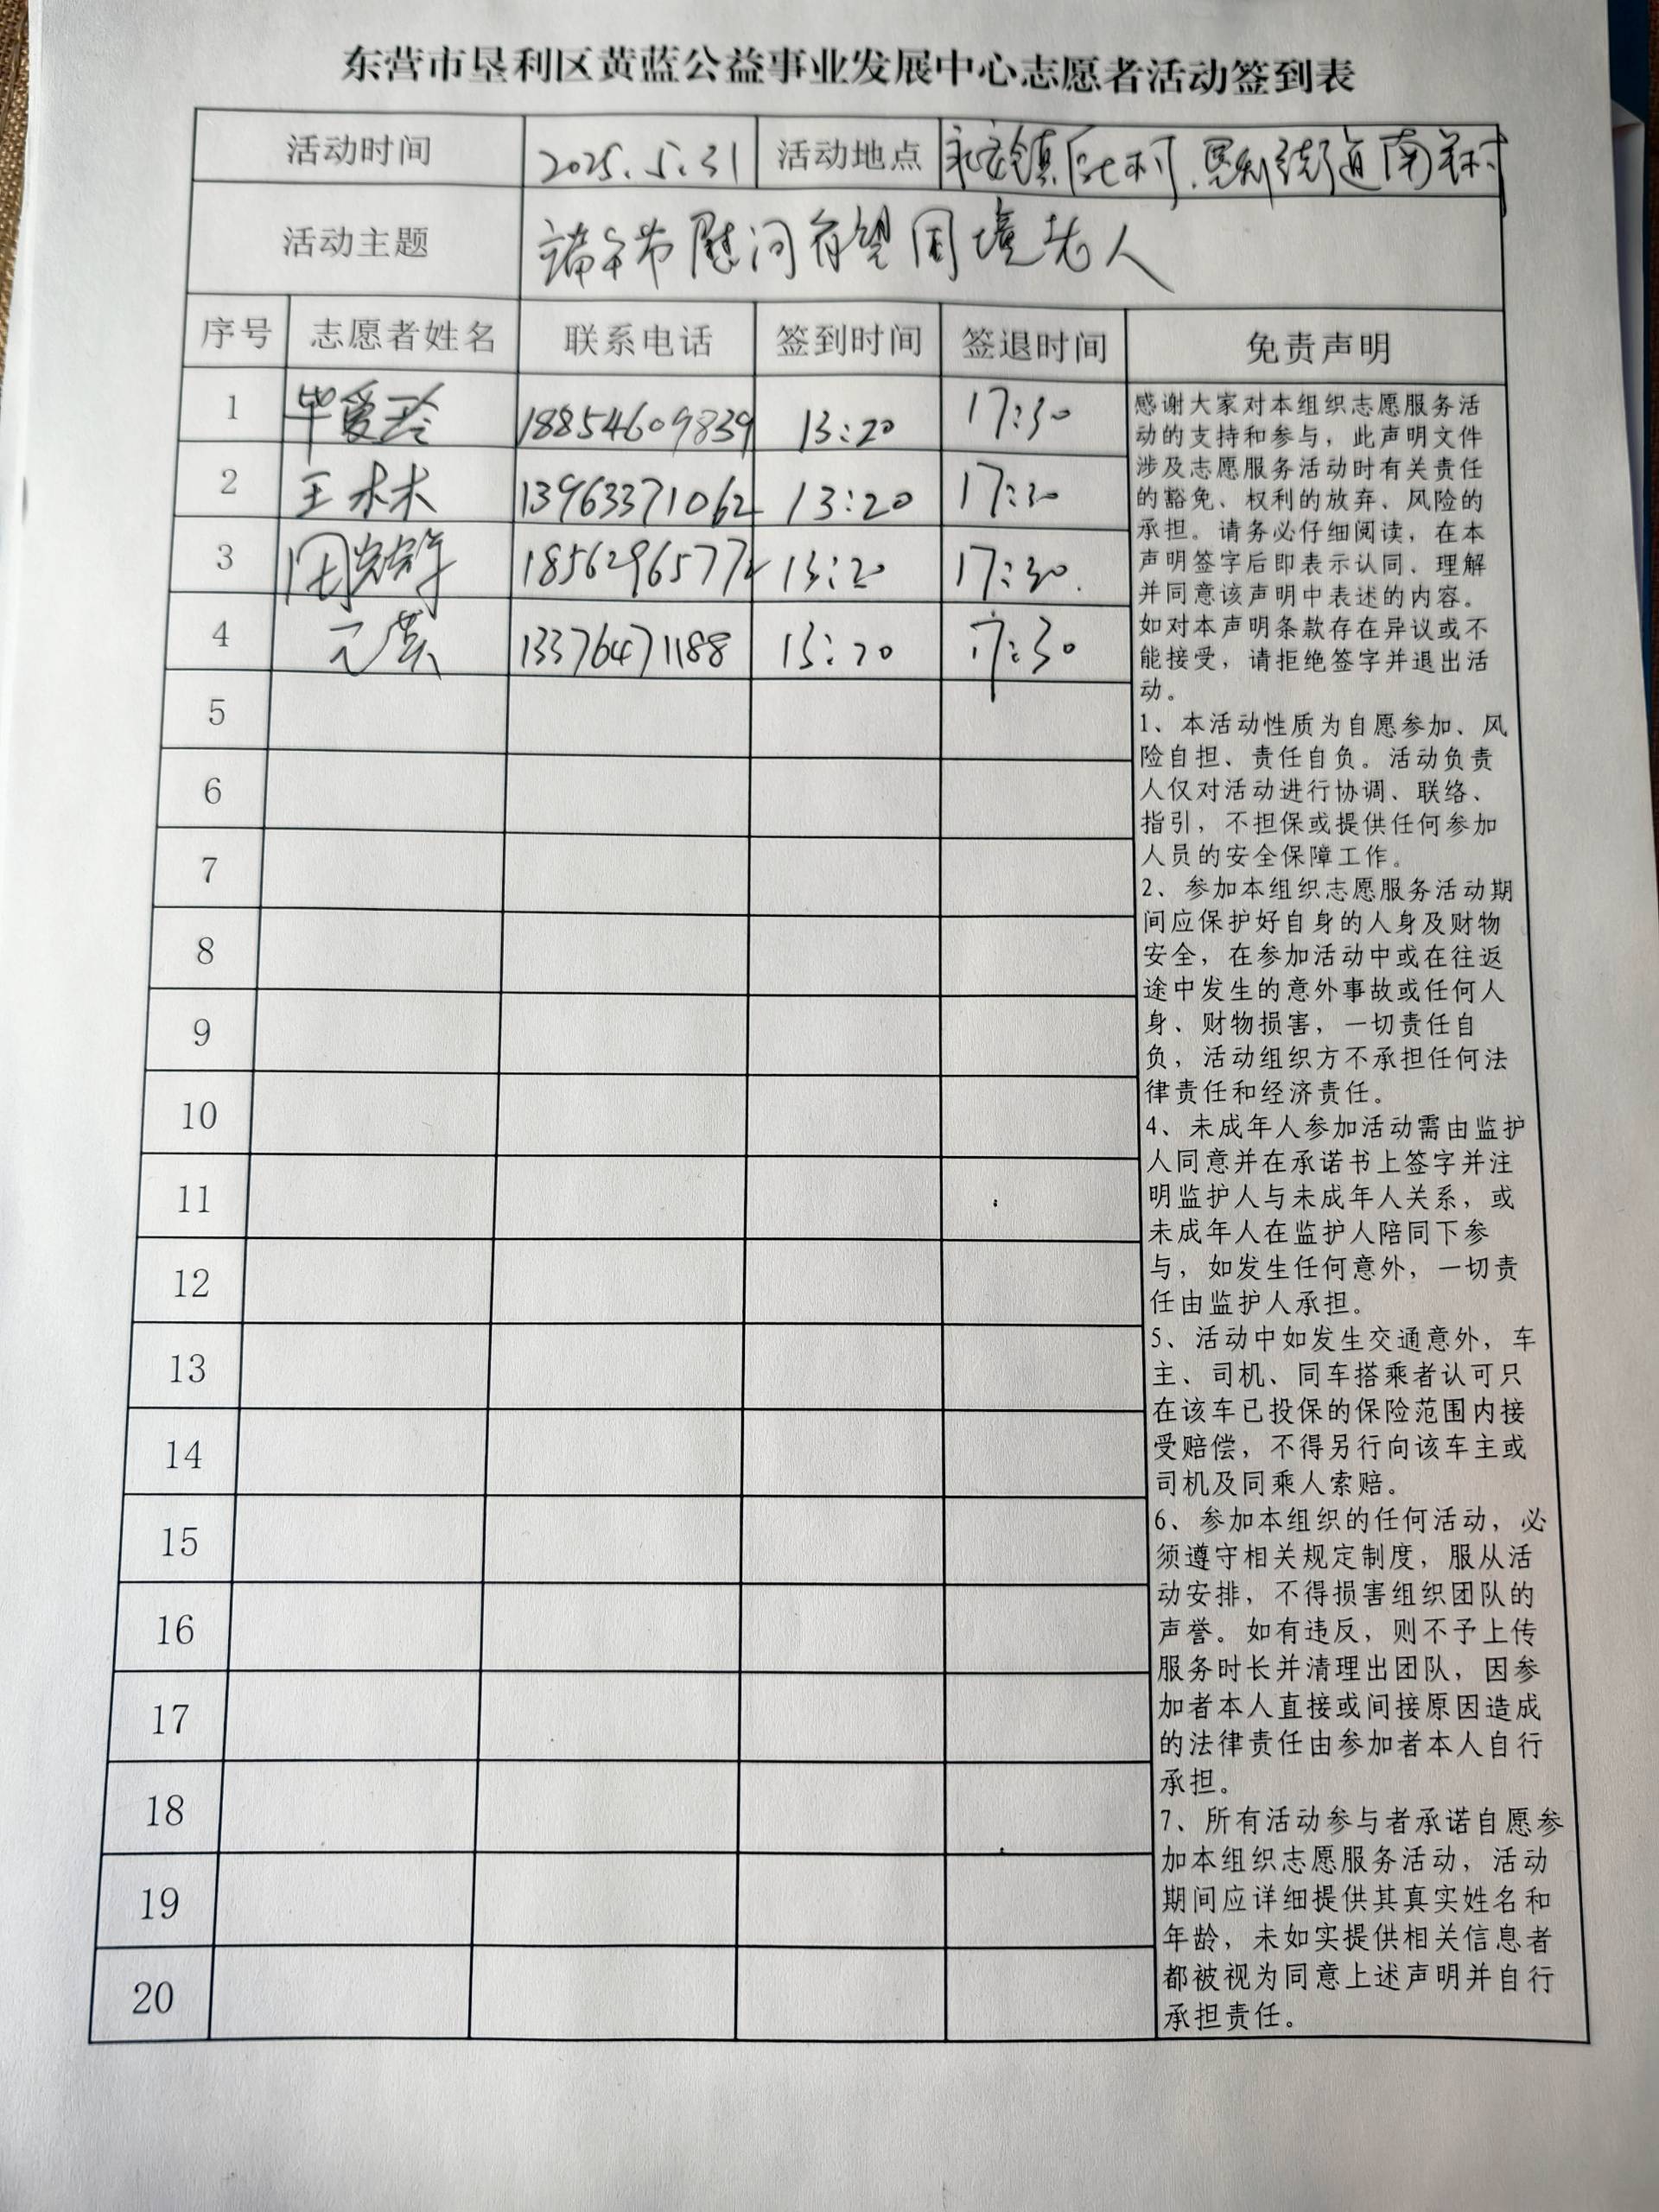 东营市垦利区黄蓝公益事业发展中心志愿者活动签到表
活动时间 2025.5.31 活动地点 永安镇 村、垦利街道南 村
活动主题 端午节慰问看望困境老人
序号 志愿者姓名 联系电话 签到时间 签退时间 免责声明
1 毕爱玲 18854609839 13:20 17:30
2 王木木 13963371062 13:20 17:30
3 18562965772 13:20 17:30
4 13376471188 13:20 17:30
5
6
7
8
9
10
11
12
13
14
15
16
17
18
19
20
感谢大家对本组织志愿服务活
动的支持和参与，此声明文件
涉及志愿服务活动时有关责任
的豁免、权利的放弃、风险的
承担。请务必仔细阅读，在本
声明签字后即表示认同、理解
并同意该声明中表述的内容。
如对本声明条款存在异议或不
能接受，请拒绝签字并退出活
动。
1、本活动性质为自愿参加、风
险自担、责任自负。活动负责
人仅对活动进行协调、联络、
指引，不担保或提供任何参加
人员的安全保障工作。
2、参加本组织志愿服务活动期
间应保护好自身的人身及财物
安全，在参加活动中或在往返
途中发生的意外事故或任何人
身、财物损害，一切责任自
负，活动组织方不承担任何法
律责任和经济责任。
4、未成年人参加活动需由监护
人同意并在承诺书上签字并注
明监护人与未成年人关系，或
未成年人在监护人陪同下参
与，如发生任何意外，一切责
任由监护人承担。
5、活动中如发生交通意外，车
主、司机、同车搭乘者认可只
在该车已投保的保险范围内接
受赔偿，不得另行向该车主或
司机及同乘人索赔。
6、参加本组织的任何活动，必
须遵守相关规定制度，服从活
动安排，不得损害组织团队的
声誉。如有违反，则不予上传
服务时长并清理出团队，因参
加者本人直接或间接原因造成
的法律责任由参加者本人自行
承担。
7、所有活动参与者承诺自愿参
加本组织志愿服务活动，活动
期间应详细提供其真实姓名和
年龄，未如实提供相关信息者
都被视为同意上述声明并自行
承担责任。